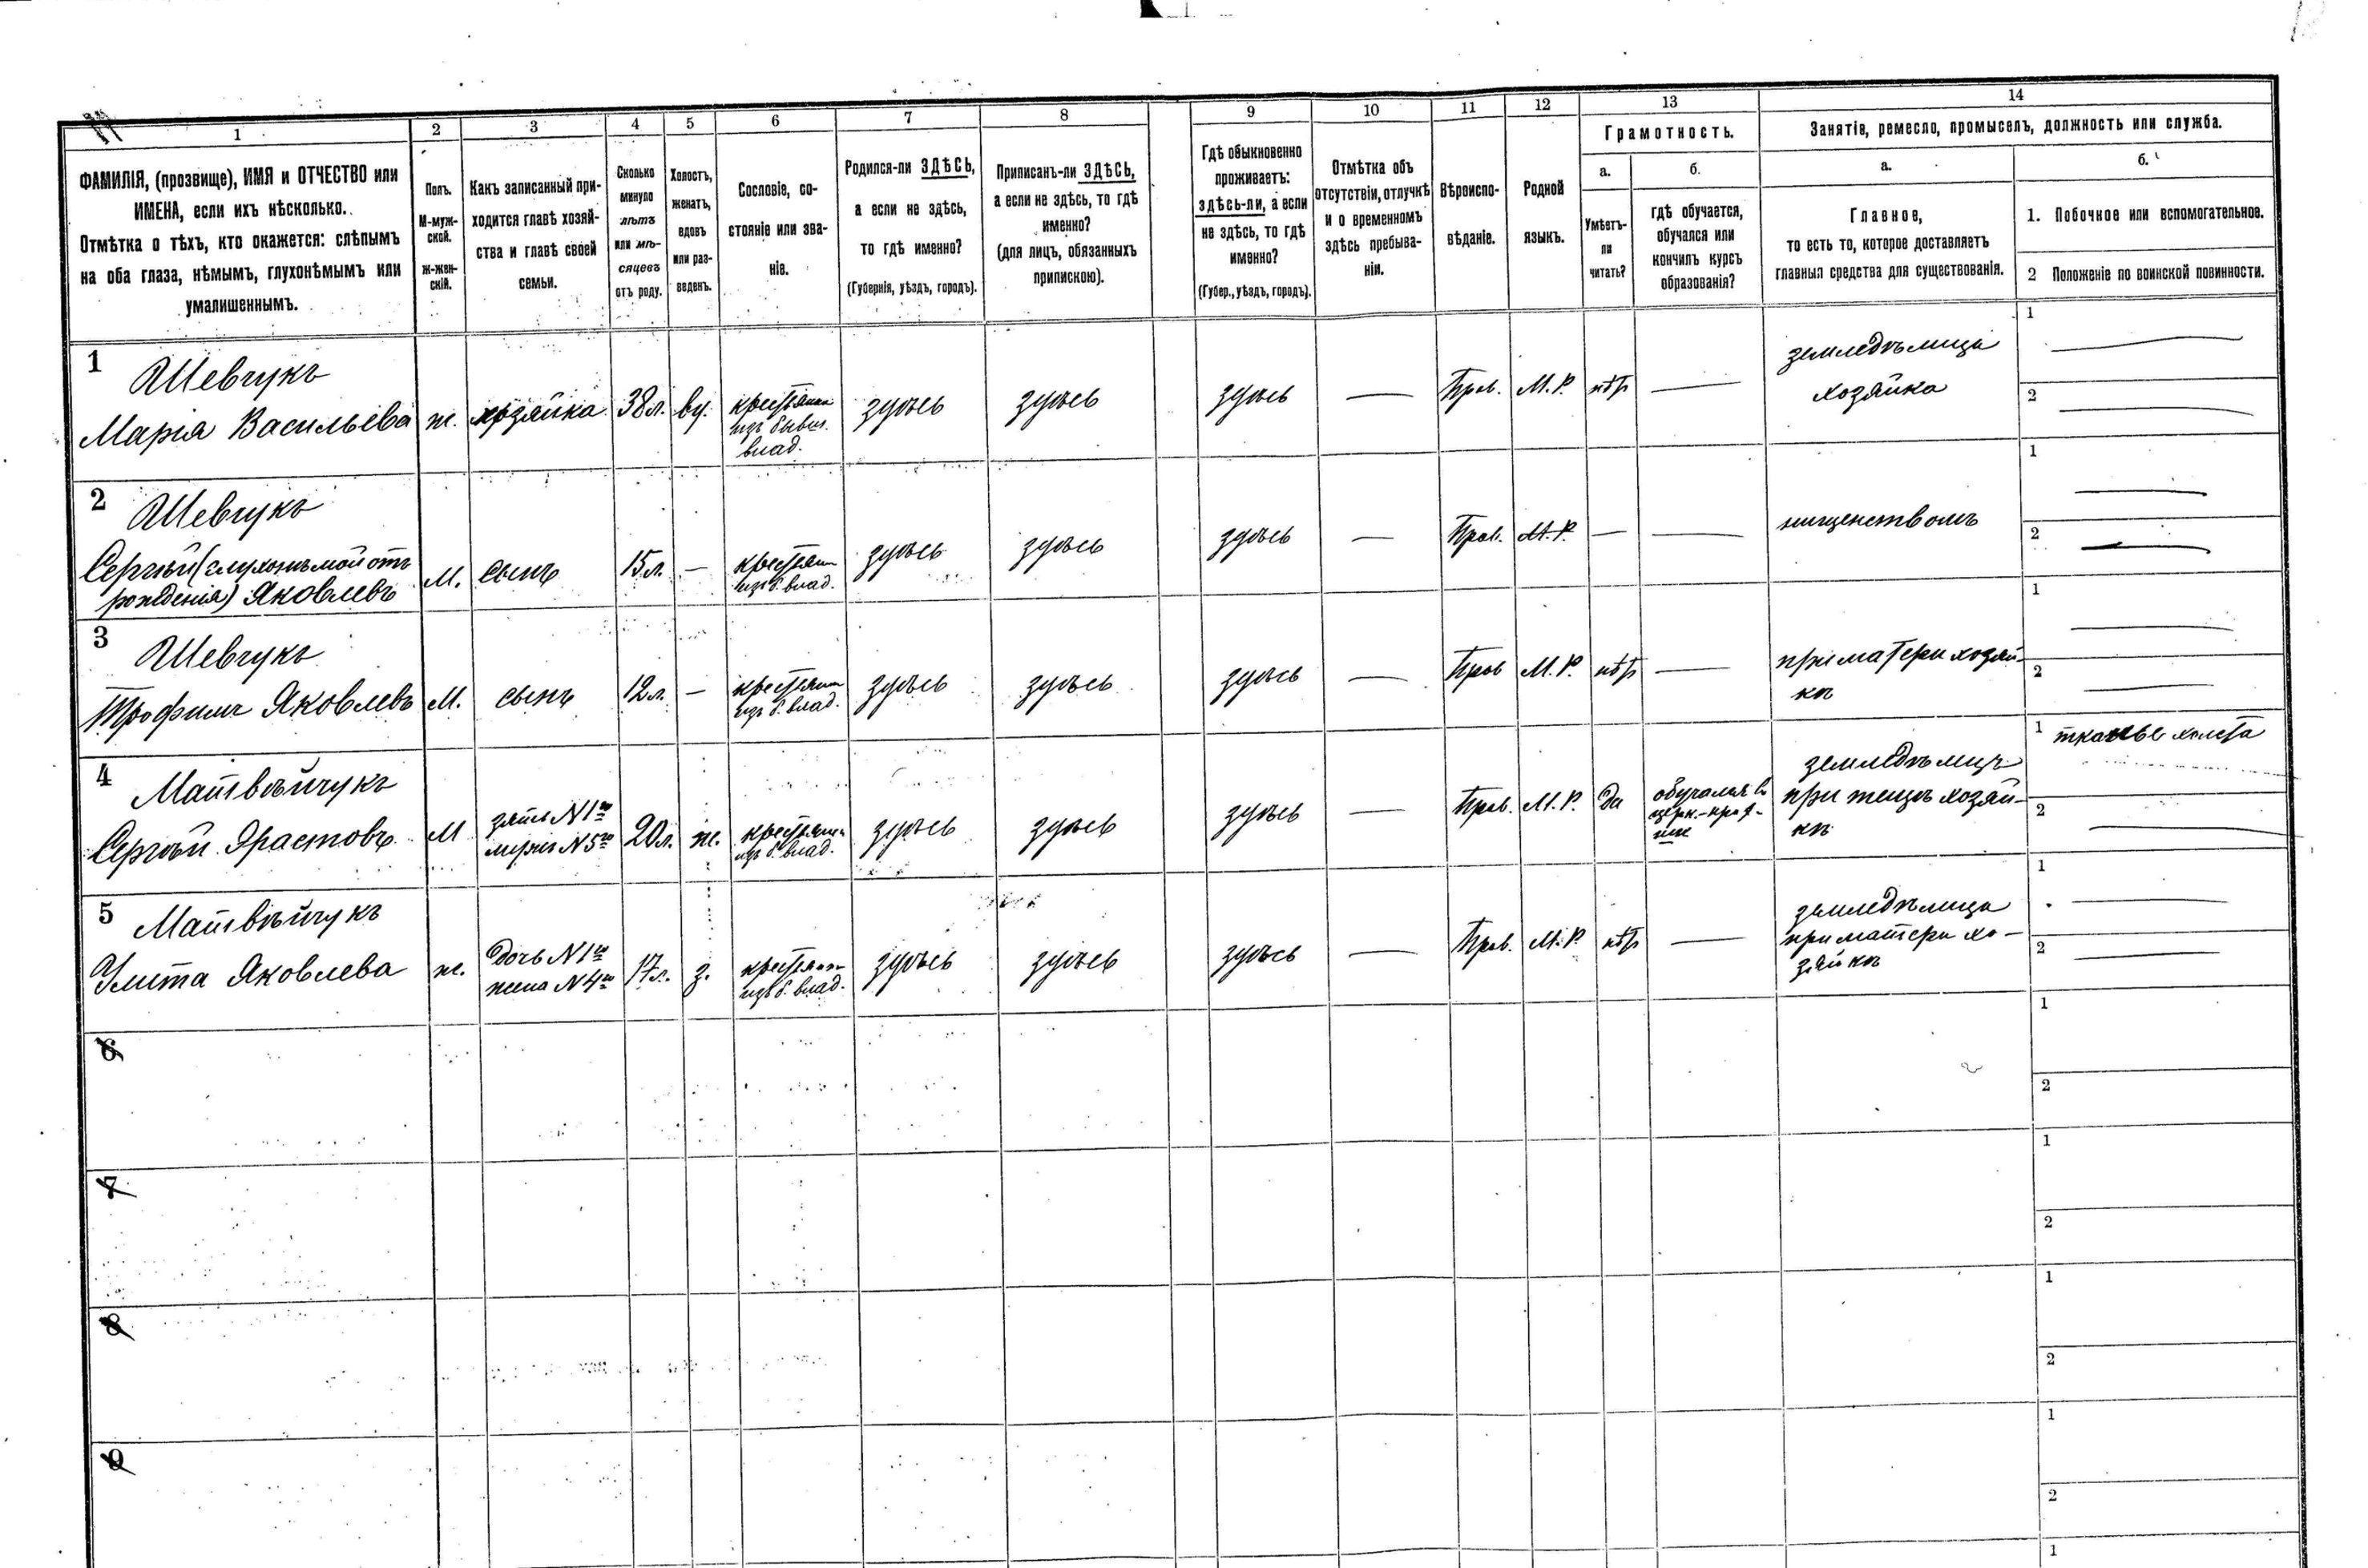 1 2 3 4 5 6 7 8 9 10 11 12 13 14
ФАМИЛІЯ, (прозвище), ИМЯ и ОТЧЕСТВО или
ИМЕНА, если ихъ нѣсколько.
Отмѣтка о тѣхъ, кто окажется: слѣпымъ
на оба глаза, нѣмымъ, глухонѣмымъ или
умалишеннымъ.
Полъ.
М-муж-
ской.
ж-жен-
скій.
Какъ записанный при-
ходится главѣ хозяй-
ства и главѣ своей
семьи.
Сколько
минуло
лѣтъ
или мѣ-
сяцевъ
отъ роду.
Холостъ,
женатъ,
вдовъ
или раз-
веденъ.
Сословіе, со-
стояніе или зва-
ніе.
Родился-ли ЗДѢСЬ,
а если не здѣсь,
то гдѣ именно?
(Губернія, уѣздъ, городъ).
Приписанъ-ли ЗДѢСЬ,
а если не здѣсь, то гдѣ
именно?
(для лицъ, обязанныхъ
припискою).
Гдѣ обыкновенно
проживаетъ:
здѣсь-ли, а если
не здѣсь, то гдѣ
именно?
(Губер., уѣздъ, городъ).
Отмѣтка объ
отсутствіи, отлучкѣ
и о временномъ
здѣсь пребыва-
ніи.
Вѣроиспо-
вѣданіе.
Родной
языкъ.
Грамотность.
а.
Умѣетъ-
ли
читать?
б.
гдѣ обучается,
обучался или
кончилъ курсъ
образованія?
Занятіе, ремесло, промыселъ, должность или служба.
а.
Главное,
то есть то, которое доставляетъ
главныя средства для существованія.
б.
1. Побочное или вспомогательное.
2 Положеніе по воинской повинности.
1
Шевчукъ
Марія Васильева
ж.
хозяйка
38 л.
вд.
крестьянка
изъ бывш.
влад.
здѣсь
здѣсь
здѣсь
—
Прав.
М. Р.
нѣт
—
земледѣлица
хозяйка
1 —
2 —
2
Шевчукъ
Сергѣй (глухонѣмой отъ
рожденія) Яковлевъ
М.
сынъ
15 л.
—
крестьян
изъ б. влад.
здѣсь
здѣсь
здѣсь
—
Прав.
М. Р.
—
—
нищенствомъ
1 —
2 —
3
Шевчукъ
Трофимъ Яковлевъ
М.
сынъ
12 л.
—
крестьян
изъ б. влад.
здѣсь
здѣсь
здѣсь
—
Прав
М. Р.
нѣт
—
при матери хозяй-
кѣ
1 —
2 —
4
Матвѣйчукъ
Сергѣй Ярастовъ
М
зять N 1го
мужъ N 5го
20 л.
ж.
крестьян
изъ б. влад.
здѣсь
здѣсь
здѣсь
—
Прав.
М. Р.
да
обучался в
церк.-
земледѣлец
при тещѣ хозяй-
кѣ
1 тканье холста
2 —
5
Матвѣйчукъ
Улита Яковлева
ж.
дочь N 1го
жена N 4го
17 л.
з.
крестьян
изъ б. влад.
здѣсь
здѣсь
здѣсь
—
Прав.
М. Р.
нѣт
—
земледѣлица
при матери хо-
зяйкѣ
1 —
2 —
6
1
2
7
1
2
8
1
2
9
1
2
1